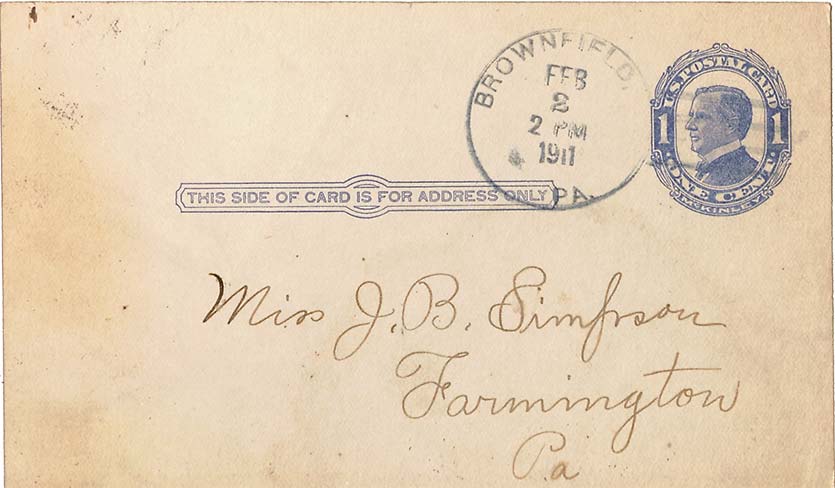 BROWNFIELD,
FEB
2
2 PM
1911
PA.
U.S. POSTAL CARD
1 1
ONE CENT
McKINLEY
THIS SIDE OF CARD IS FOR ADDRESS ONLY
Miss J. B. Simpson
Farmington
Pa